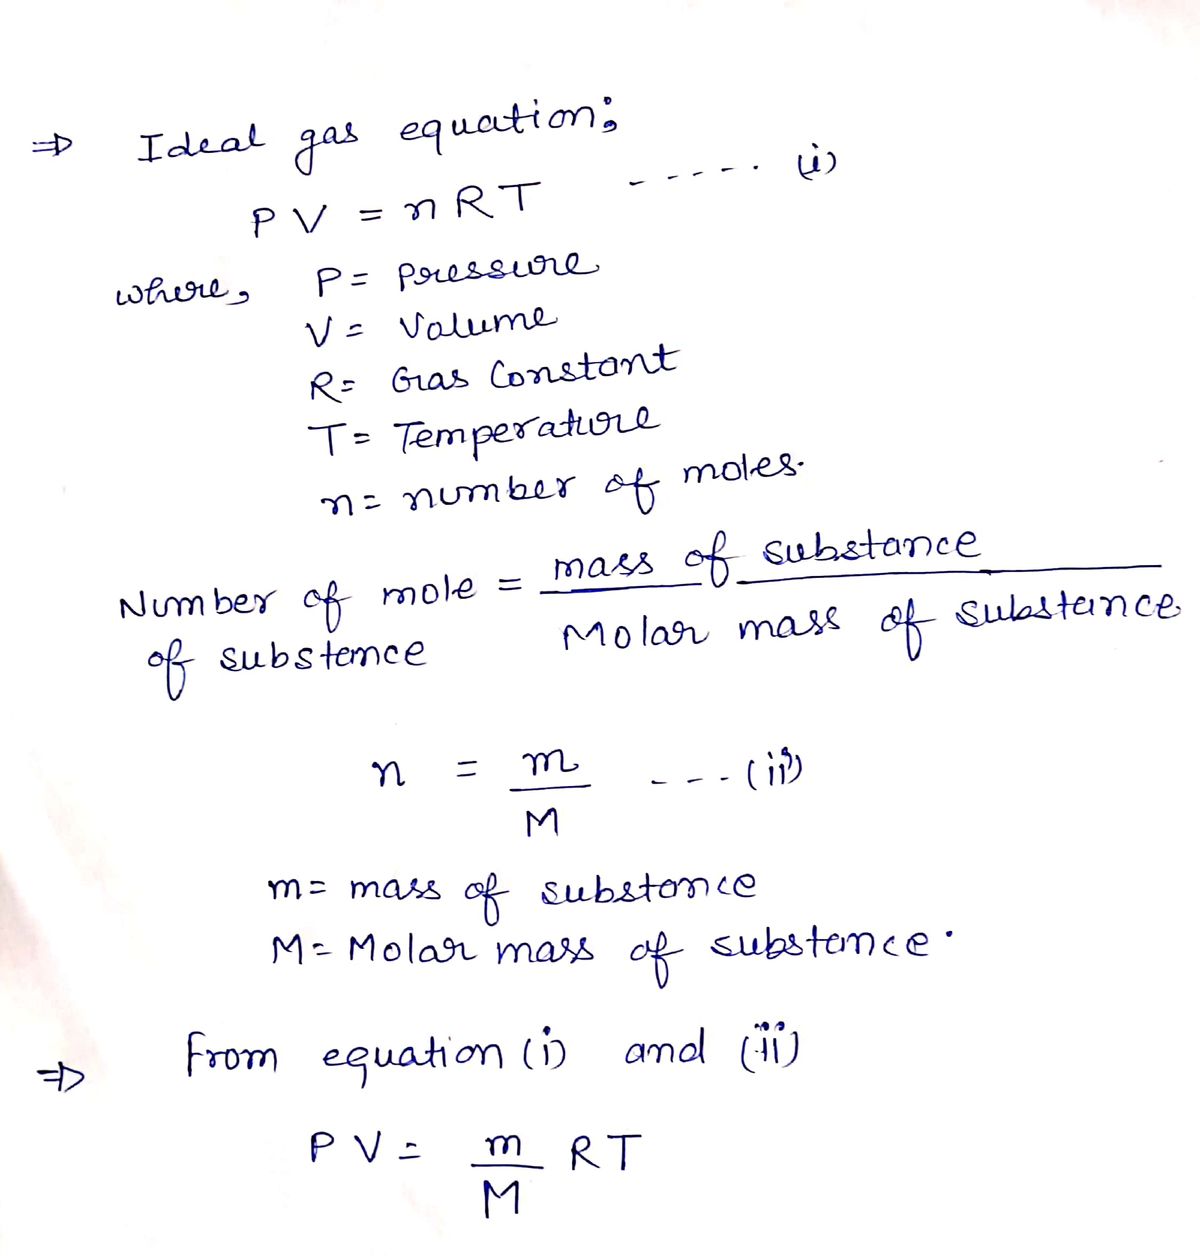 ⇒ Ideal gas equation;
PV = nRT ----- (i)
where, P = Pressure
V = Volume
R = Gas Constant
T = Temperature
n = number of moles.
Number of mole = mass of substance
of substance Molar mass of substance
n = m/M --- (ii)
m = mass of substance
M = Molar mass of substance.
⇒ From equation (i) and (ii)
PV = m/M RT